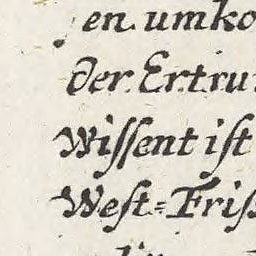 en umko
der Ertru
Wissent ist
West=Fris